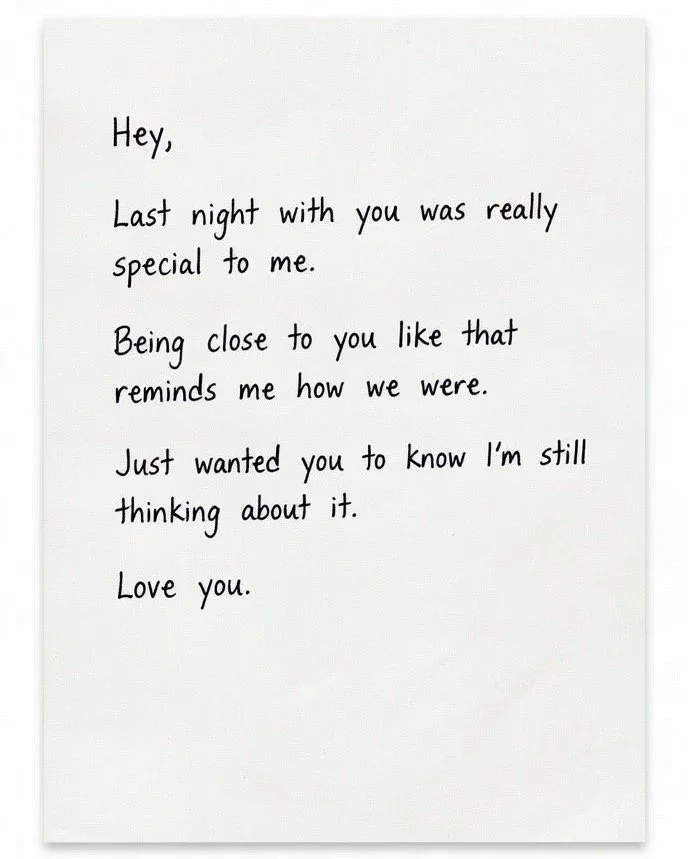 Hey,
Last night with you was really
special to me.
Being close to you like that
reminds me how we were.
Just wanted you to know I'm still
thinking about it.
Love you.